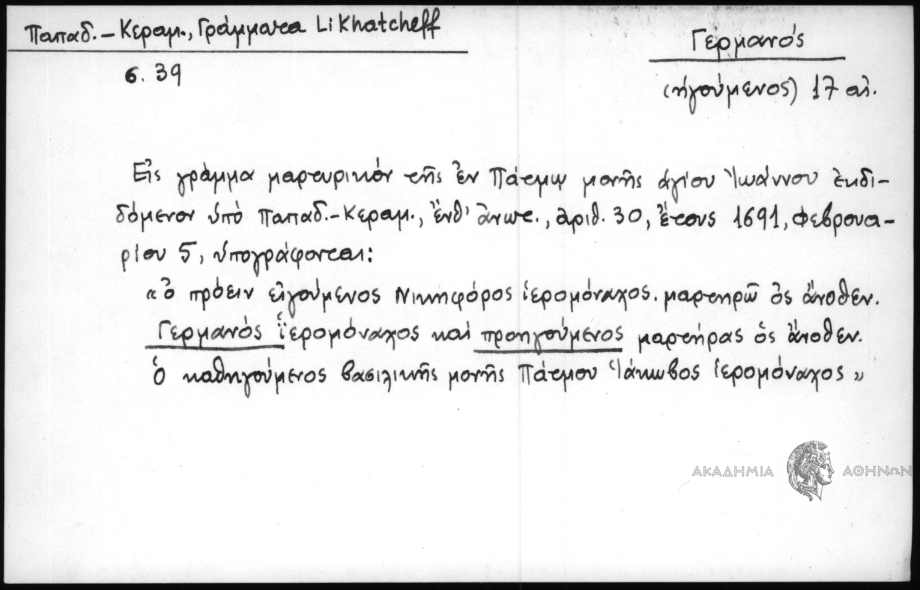 Παπαδ.-Κεραμ., Γράμματα Likhatcheff
σ. 39
Γερμανός
(ἡγούμενος) 17 αἰ.
Εἰς γράμμα μαρτυρικόν τῆς ἐν Πάτμῳ μονῆς ἁγίου Ἰωάννου ἐκδι-
δόμενον ὑπό Παπαδ.-Κεραμ., ἔνθ' ἀνωτ., ἀριθ. 30, ἔτους 1691, Φεβρουα-
ρίου 5, ὑπογράφονται:
«ὁ πρόειν εἰγούμενος Νικηφόρος ἱερομόναχος. μαρτηρῶ ὁς ἄνοθεν.
Γερμανός ἱερομόναχος καί προηγούμενος μαρτήρας ὁς ἄνοθεν.
Ὁ καθηγούμενος βασιλικῆς μονῆς Πάτμου Ἰάκωβος ἱερομόναχος»
ΑΚΑΔΗΜΙΑ ΑΘΗΝΩΝ